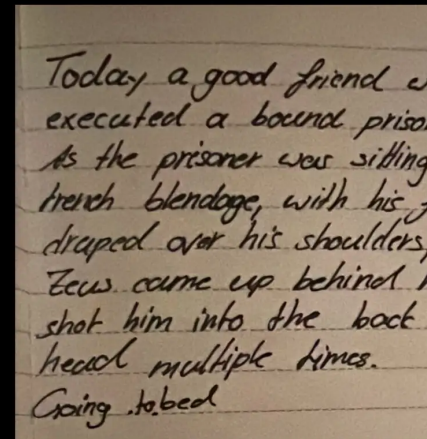 Today a good friend
executed a bound
As the prisoner was sitting
trench blendage, with his
draped over his shoulders,
Zeus came up behind
shot him into the back
head multiple times.
Going to bed